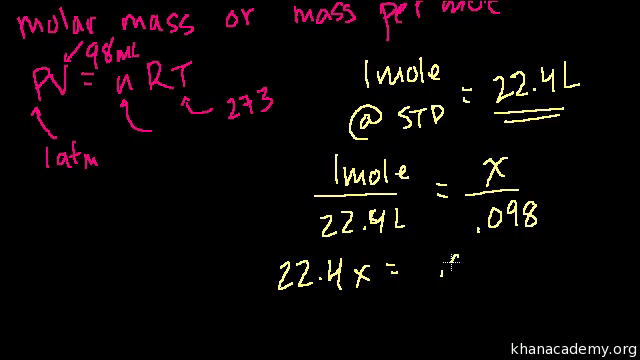 molar mass or mass per mole
98mL
PV = nRT
273
1atm
1mole
@ STD = 22.4L
1mole / 22.4L = x / .098
22.4x = .
khanacademy.org